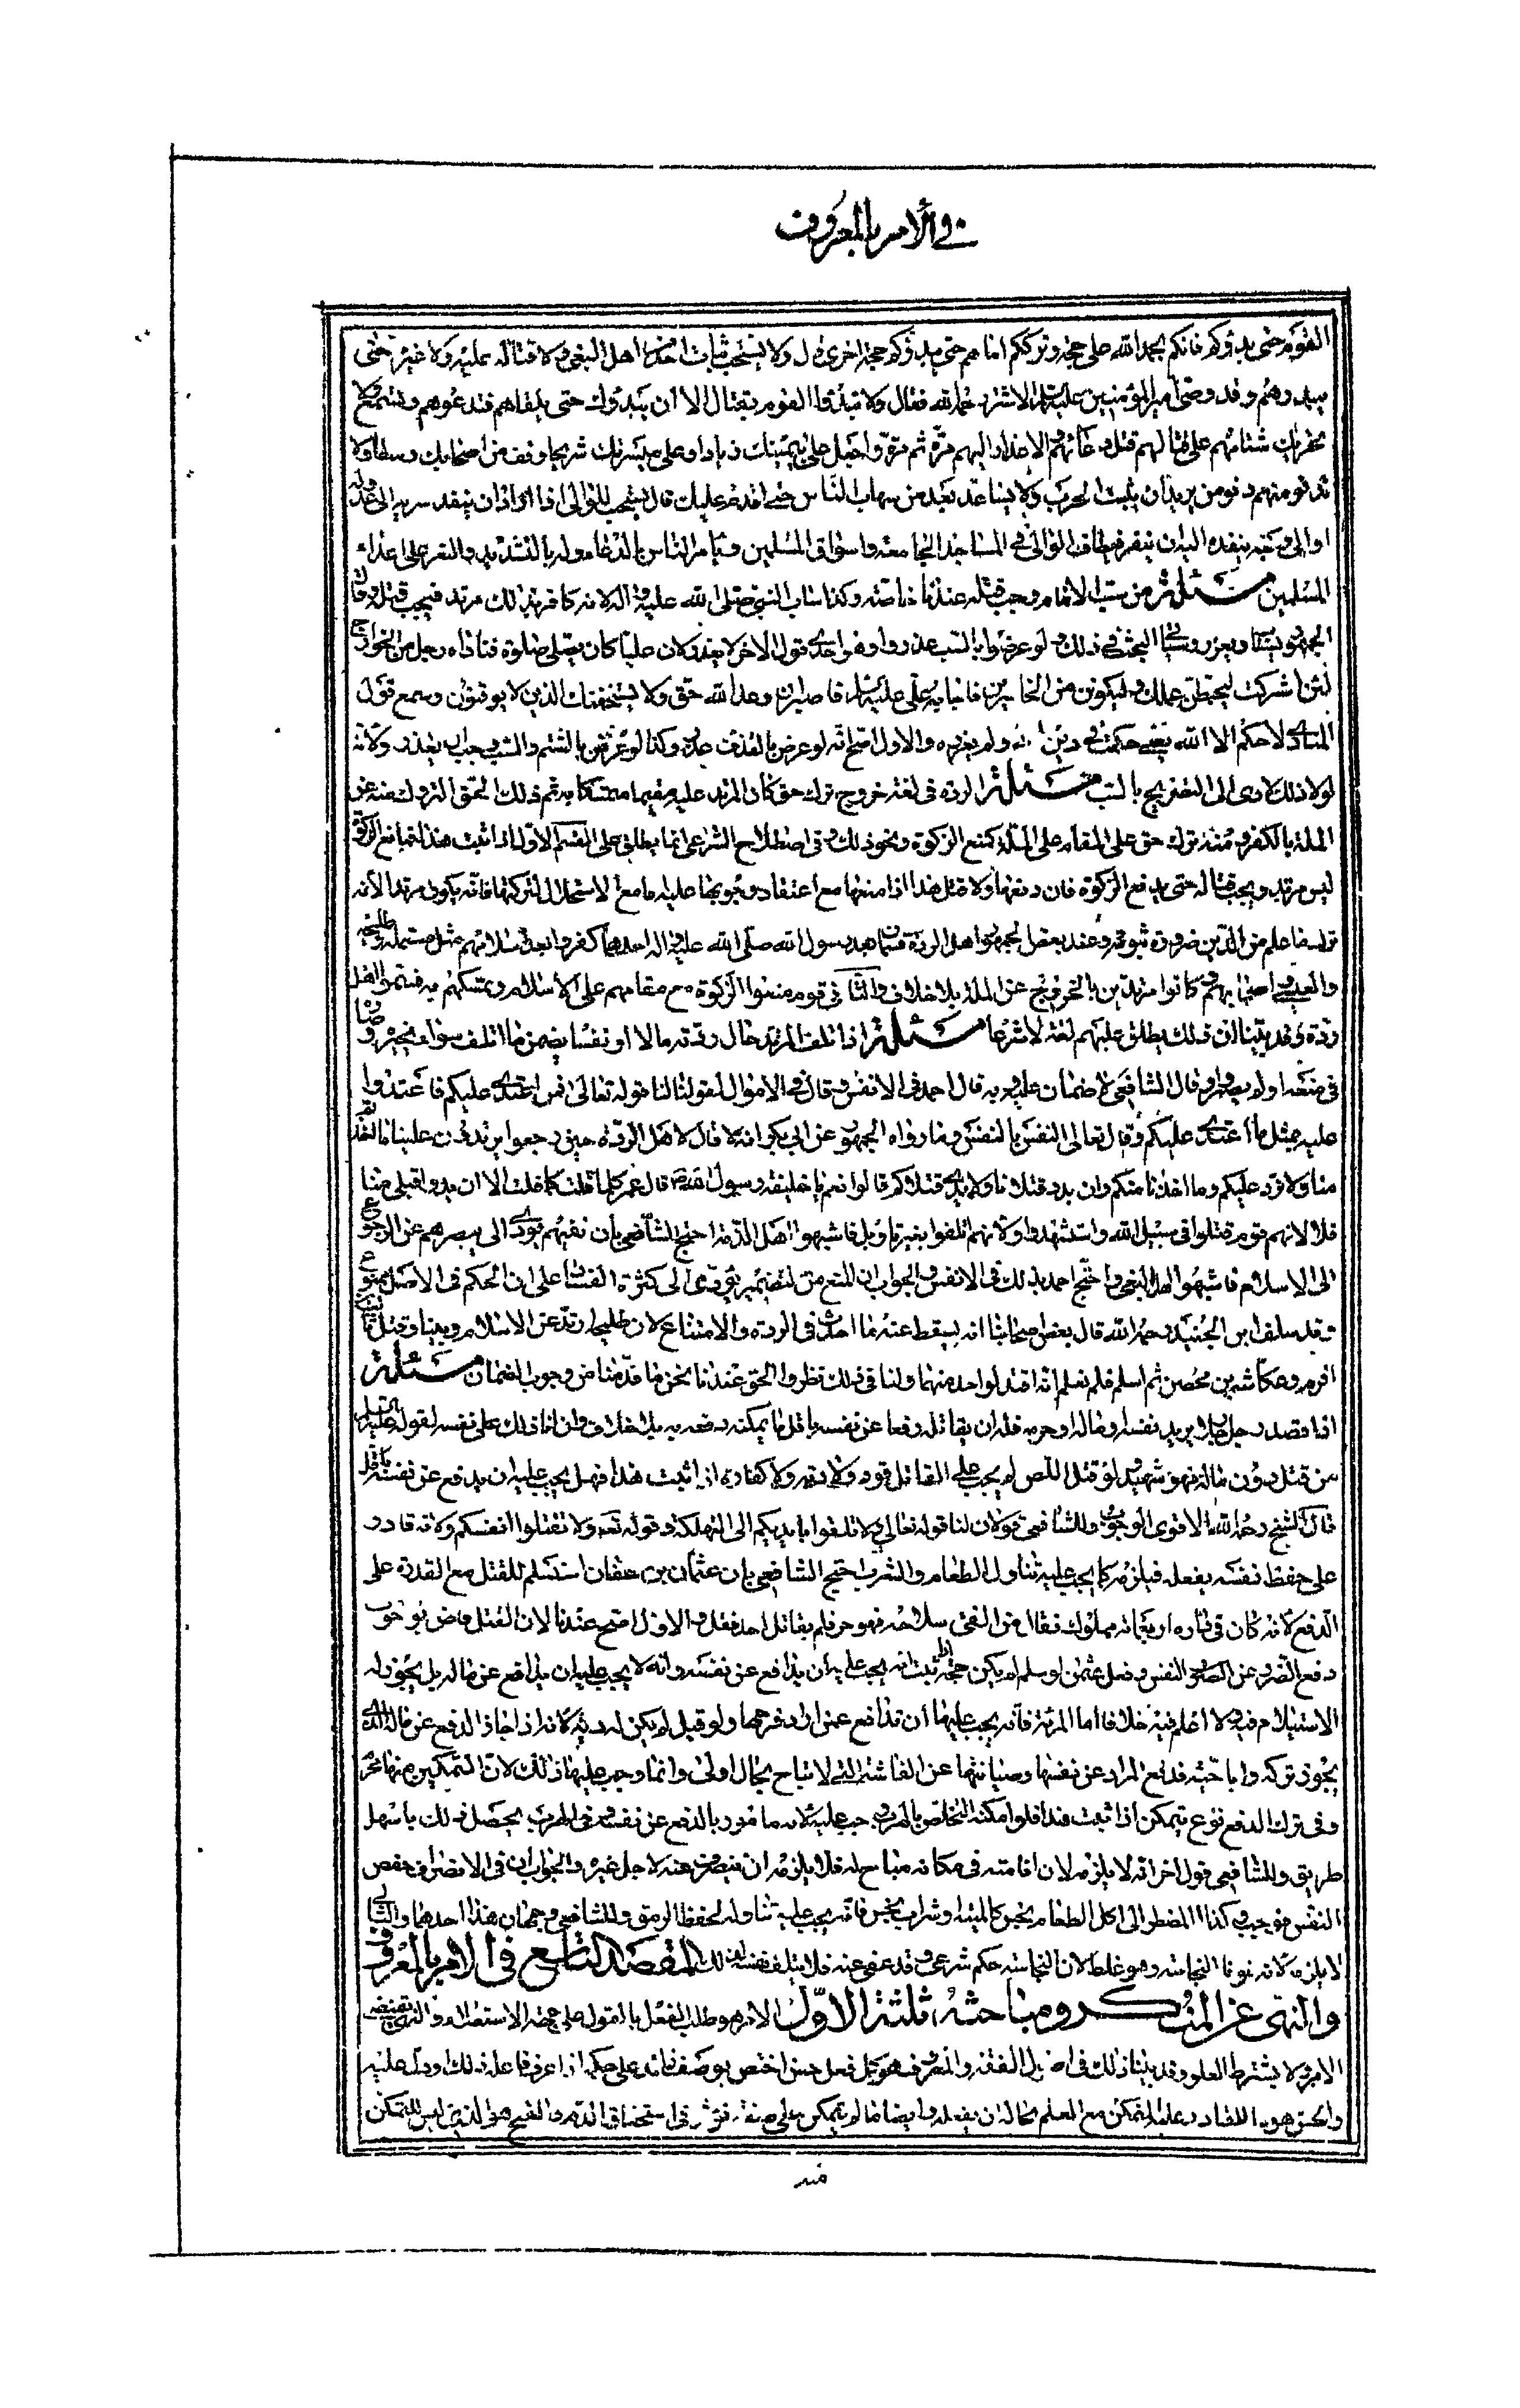 في الأمر بالمعروف
القوم حتى يبدؤكم فانكم بحمد الله على حجة وترككم اياهم حتى يبدؤكم حجة اخرى قال ولا يستحب ثبات احد من اهل البغي ولا قتاله عليه ولا غيره حتى
يبدوهم وقد وصّى امير المؤمنين عليه السلام الاشتر رحمه الله فقال ولا تبدأوا القوم بقتال الا أن يبدؤك حتى تلقاهم فتدعوهم وتسمع ولا
يجرينك شنآنهم على قتالهم قبل دعائهم والاعذار اليهم مرّة ثم مرّة واجعل على ميمنتك زيادا وعلى ميسرتك شريحا وقف من اصحابك وسطا ولا
تدنو منهم دنو من يريد ان ينشب الحرب ولا تباعد تباعد من يهاب النّاس حتى اقدم عليك قال يستحب للوالي اذا اراد ان ينفد سرية الى عدو له
المسلمين مسئلة من سبّ الامام وجب قتله عندنا خاصة وكذا سابّ النبي صلى الله عليه وآله لانه كافر بذلك مرتد فيجب قتله وقال
الجمهور يستتاب ويعزر وسيأتي البحث في ذلك ولو عرضوا بالسب عذروا وهو احدى قولي الاخر لا يعذر لان عليّا كان يصلي صلوة فناداه رجل من الخوارج
لئن اشركت ليحبطنّ عملك ولتكونن من الخاسرين فاجابه علي عليه السلام فاصبر ان وعد الله حق ولا يستخفنك الذين لا يوقنون وسمع قول
المنادي لا حكم الا الله يعني حكمت في دين الله ولم يعزره والاول اصح لانه لو عرض بالقذف عذر وكذا لو عرض بالشتم والسب وجب ان يعذر ولانه
لولا ذلك لادى الى التصريح بالسب مسئلة الردة في لغة خروج ترك حق كان المرتد عليه مقيما متمسكا به ثم ذلك الحق المتروك منه عن
الملة بالكفر ومنه ترك حق على المقام على الملة كمنع الزكوة ونحو ذلك وفي اصطلاح الشرع انما يطلق على القسم الاول اذا ثبت هذا فمانع الزكوة
ليس مرتد ويجب قتاله حتى يدفع الزكوة فان دفعها ولا قتل هذا اذا منعها مع اعتقاد وجوبها عليه اما مع الاستحلال لتركها فانه يكون مرتدا لأنه
ترك ما علم من الدّين ضرورة ثبوته وعند بعض الجمهور اهل الردة قسمان بعد رسول الله صلى الله عليه وآله احدهما كفروا بعد اسلامهم مثل مسيلمة وطليحة
والعنسي واصحابهم وكانوا مرتدين بالخروج عن الملة بلا خلاف والثاني قوم منعوا الزكوة مع مقامهم على الاسلام وتمسكهم به فسمّوا اهل
ردّة وقد بيّنا ان ذلك يطلق عليهم لغة لا شرعا مسئلة اذا اتلف المرتد حال ردته مالا او نفسا يضمن ما اتلف سواء تحيز وصار
في منعة او لم يصر وقال الشافعي لا ضمان عليه وبه قال احمد في الانفس وقال في الاموال كقولنا لنا قوله تعالى فمن اعتدى عليكم فاعتدوا
عليه بمثل ما اعتدى عليكم وقال تعالى النفس بالنفس وما رواه الجمهور عن ابي بكر انه قال لاهل الردة حين رجعوا تردون علينا
منا ولا نرد عليكم وما اخذنا منكم وان يدوا قتلانا ولا ندي قتلاكم قالوا نعم يا خليفة رسول الله قال عمر كلما قلت كما قلت الا ان يدوا قتلى منا
فلا لانهم قوم قتلوا في سبيل الله واستشهدوا ولانهم اتلفوا بغير تأويل فاشبهوا اهل الذمة احتج الشافعي بأن تضمينهم يؤدي الى تنفيرهم عن الرجوع
الى الاسلام فاشبهوا اهل البغي واحتج احمد بذلك في الانفس والجواب ان المنع من التضمين يؤدي الى كثرة الفساد على ان الحكم في الاصل ممنوع
وقد سلف ابن الجنيد رحمه الله قال بعض اصحابنا انه يسقط عنه ما احدث في الردة والامتناع لان طليحة ارتد عن الاسلام وقتل ثابت بن
اقرم وعكاشة بن محصن ثم اسلم فلم نعلم انه اقتد لواحد منهما ولنا في ذلك نظر والحق عندنا نحن ما قدّمنا من وجوب الضمان مسئلة
اذا قصد رجل رجلا يريد نفسه او ماله او حرمه فله ان يقاتله دفعا عن نفسه باقل ما يمكنه دفعه به بلا خلاف وان اتى ذلك على نفسه لقوله عليه السلام
من قتل دون ماله فهو شهيد ولو قتل اللص لم يجب على القاتل قود ولا دية ولا كفارة اذا ثبت هذا فهل يجب عليه ان يدفع عن نفسه باقل
قال الشيخ رحمه الله الاقوى الوجوب وللشافعي قولان لنا قوله تعالى ولا تلقوا بايديكم الى التهلكة وقوله تعالى ولا تقتلوا انفسكم ولانه قادر
على حفظ نفسه بفعله فيلزمه كما يجب عليه تناول الطعام والشرب احتج الشافعي بان عثمان بن عفان استسلم للقتل مع القدرة على
الدفع لانه كان في داره اربعمائة مملوك فقال من القى سلاحه فهو حر فلم يقاتل احد فقتل والاول اصح عندنا لان العقل قاض بوجوب
دفع الضرر عن النفس وفعل عثمان لو سلم لم يكن حجة اذا ثبت انه يجب عليه ان يدافع عن نفسه وانه لا يجب عليه ان يدافع عن ماله بل يجوز له
الاستسلام فيه ولا اعلم فيه خلافا اما المرأة فانه يجب عليها أن تدافع عمن اراد فرجها ولو قتل لم يكن له دية لانه اذا جاز الدفع عن ماله الذي
يجوز تركه واباحته فدفع المرأة عن نفسها وصيانتها عن الفاحشة التي لا تباح بحال اولى وانما وجب عليها ذلك لان التمكين منها محرم
وفي ترك الدفع نوع تمكن اذا ثبت هذا فلو امكنه التخلص بالهرب وجب عليه لانه مامور بالدفع عن نفسه وفي الهرب يحصل ذلك باسهل
طريق وللشافعي قول اخر انه لا يلزمه لان اقامته في مكانه مباح له فلا يلزمه ان ينصرف عنه لاجل غيره والجواب ان في الانصراف حفظ
النفس فوجب وكذا المضطر الى اكل الطعام نجس كالميتة او شراب نجس فانه يجب عليه تناوله لحفظ الرمق وللشافعي وجهان هذا احدهما والثاني
لا يلزمه لانه يتوقا النجاسة وهو غلط لان النجاسة حكم شرعي وقد عفي عنه فلا يتلف نفسه لذلك المقصد التاسع في الامر بالمعروف
والنهي عن المنكر ومباحثه ثلثة الاوّل الامر هو طلب الفعل بالقول على جهة الاستعلاء والنهي نقيضه
الامر ولا يشترط العلو وقد بيّنا ذلك في اصول الفقه والمعروف هو كل فعل حسن اختص بوصف زائد على حسنه اذا عرف فاعله ذلك او دل عليه
والحسن هو ما للقادر عليه المتمكن مع العلم بحاله ان يفعله وايضا ما لم يكن على صفة تؤثر في استحقاق الذم والقبيح هو الذي ليس للمتمكن
منه